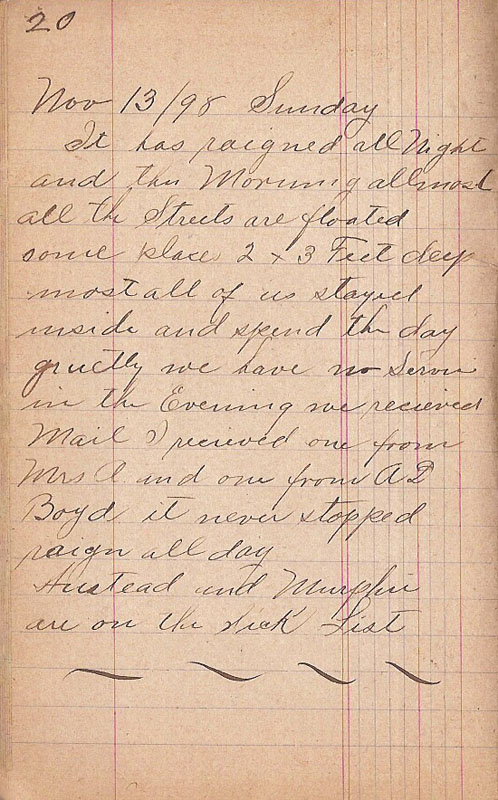 20
Nov 13/98 Sunday
It has raigned all Night
and this Morning allmost
all the Streets are floated
some places 2 x 3 Feet deep
most all of us stayed
inside and spend the day
qruetly we have no Servise
in the Evening we recieved
Mail I recieved one from
Mrs A and one from A D
Boyd it never stopped
raign all day
and Murphie
are on the sick List